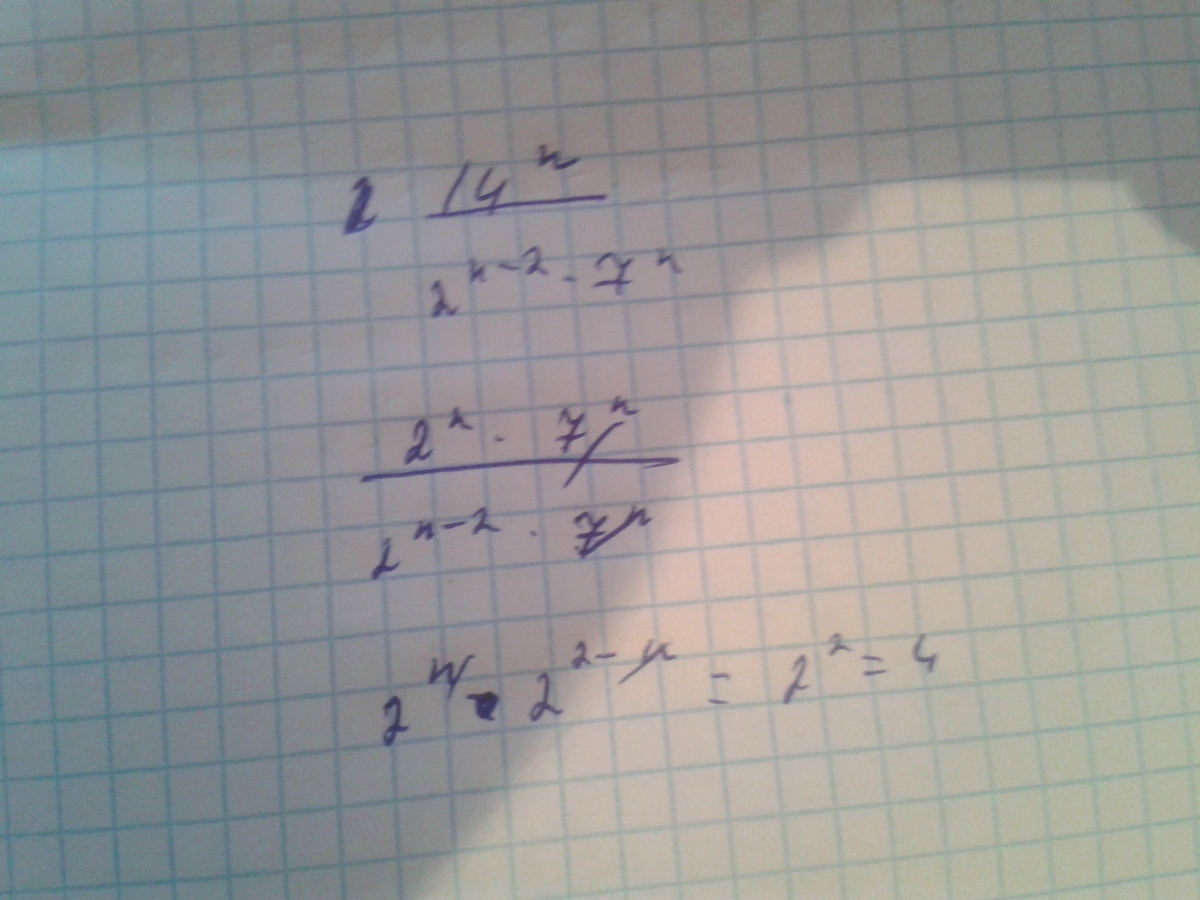 14ⁿ
2ⁿ⁻² · 7ⁿ
2ⁿ · 7ⁿ
2ⁿ⁻² · 7ⁿ
2ⁿ · 2²⁻ⁿ = 2² = 4